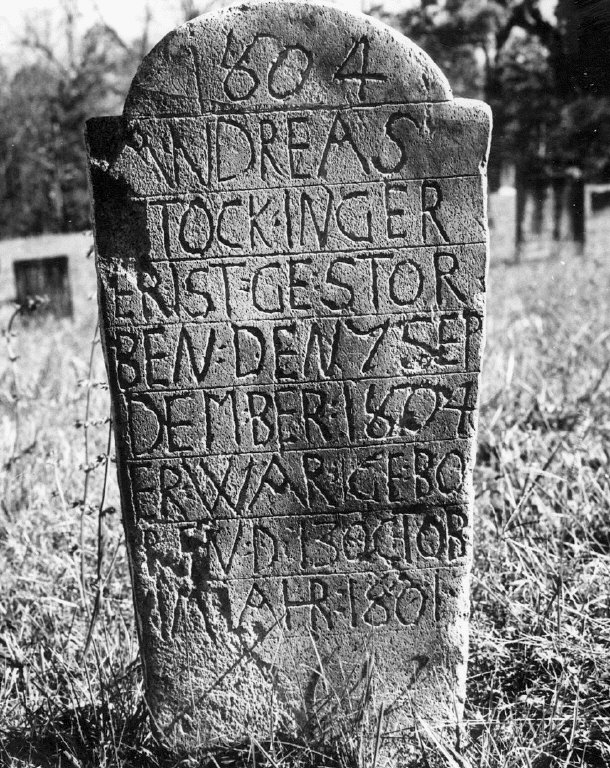 1804
ANDREAS
TOCK:INGER
ERIST:GESTOR
BEN:DEN 7 SEP
DEMBER:1804
ERWAR:GEBO
D 13 OCTOB
IAHR:1801